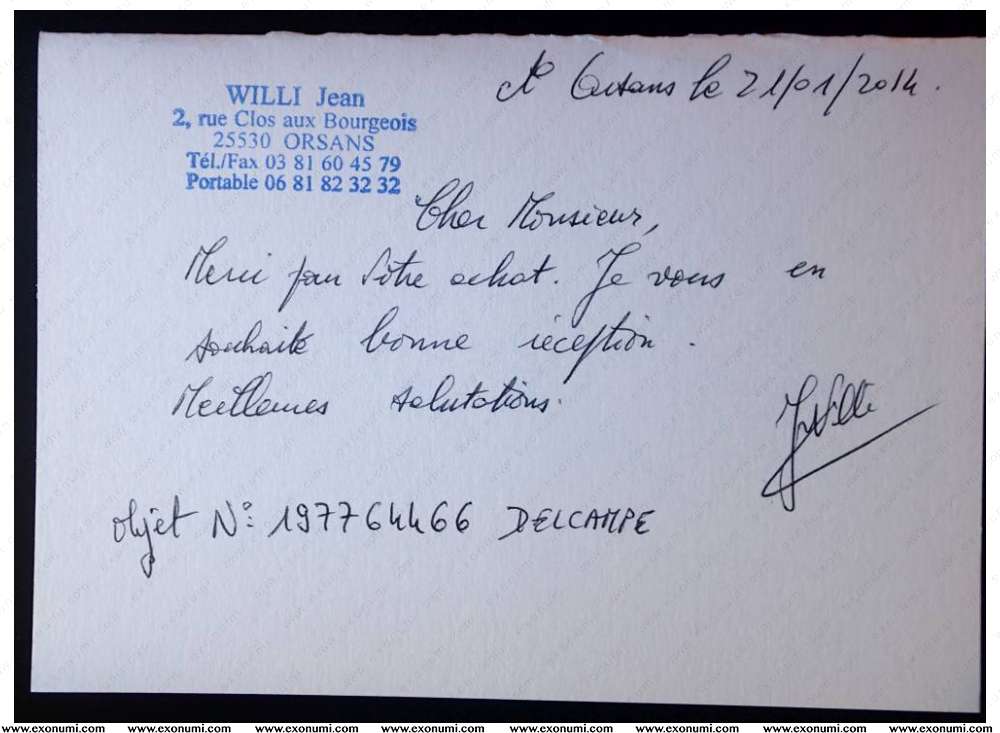 WILLI Jean
2, rue Clos aux Bourgeois
25530 ORSANS
Tél./Fax 03 81 60 45 79
Portable 06 81 82 32 32
A Orsans le 21/01/2014.
Cher Monsieur,
Merci pour Votre achat. Je vous en
souhaite bonne réception.
Meilleures salutations.
JWilli
objet N°: 197764466 DELCAMPE
www.exonumi.com www.exonumi.com www.exonumi.com www.exonumi.com www.exonumi.com www.exonumi.com www.exonumi.com www.exonumi.com